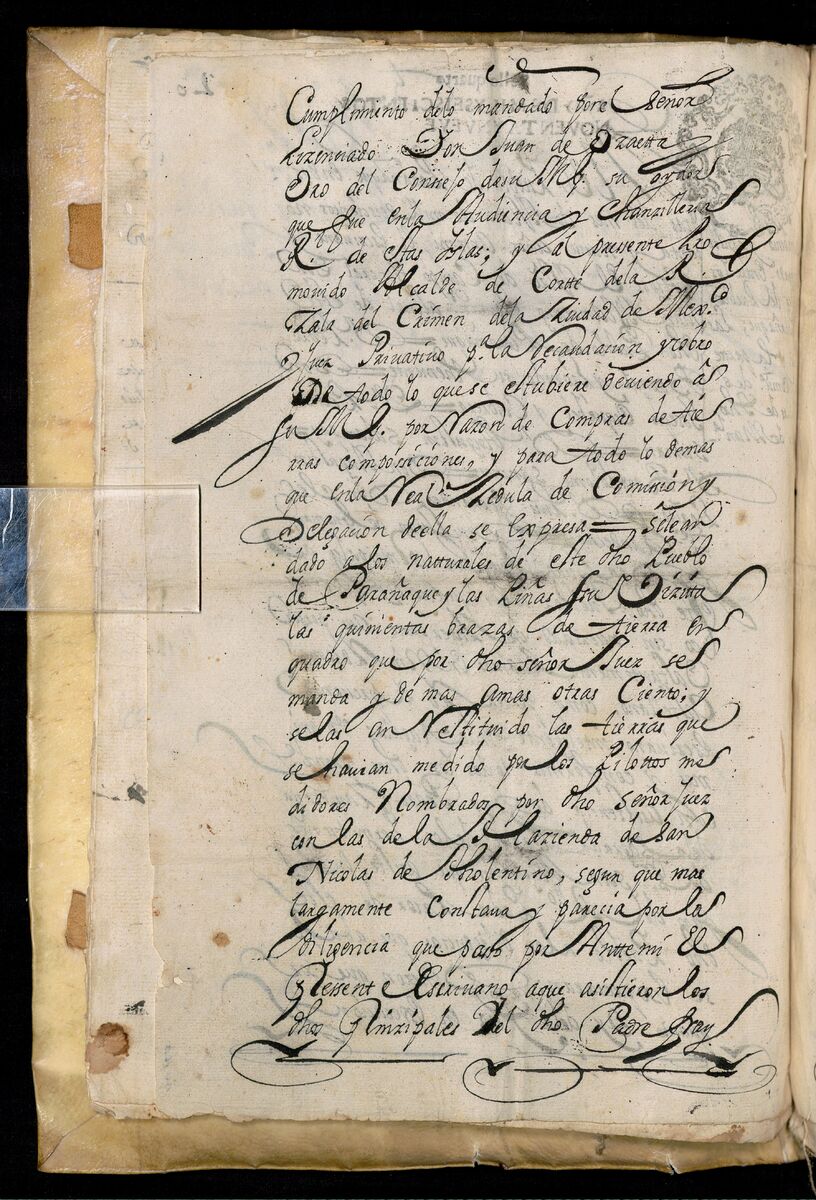 Cumplimiento delo mandado por el señor
Lizenciado Don Juan de Ozaetta y
Oro del Consejo desu Mg. su oydor
que fue enla Audiencia y Chanzilleria
R.l de estas Islas; y al pressente Pro
movido Alcalde de Cortte dela R.l
Zala del Crimen dela Ziudad de Mex.co
Juez Privativo p.a la Recaudación y cobro
De todo lo que se estubiere deviendo á
su Mg. por Razon de Compras de tie
rras composiciones, y para todo lo demas
que enla Real Zedula de Comission y
Delegación deella se Expresa = sele an
dado a los natturales de este dho Pueblo
de Parañaque y las Piñas su Vizitta
las quinientas brazas de tierra en
quadro que por dho señor Juez se
manda y demas amas otras Ciento; y
selas an Restituido las tierras que
se havian medido por los Pilottos me
didores Nombrados por dho señor Juez
con las de la Hazienda de San
Nicolas de Tholentino, segun que mas
largamente Constava y parecia por la
diligencia que passo por Anttemi El
Pressente Escrivano aque asistieron los
dhos Prinzipales Del dho Padre fray